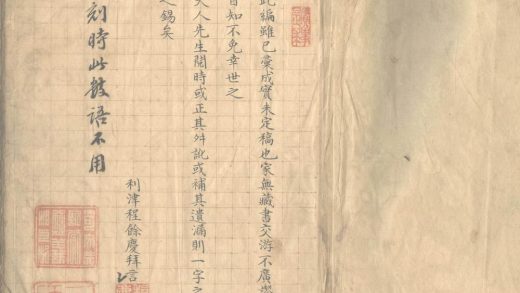 此編雖已彙成實未定稿也家無藏書交游不廣
自知不免幸世之
大人先生閱時或正其舛訛或補其遺漏則一字之
之錫矣
利津程餘慶拜言
刻時此數語不用